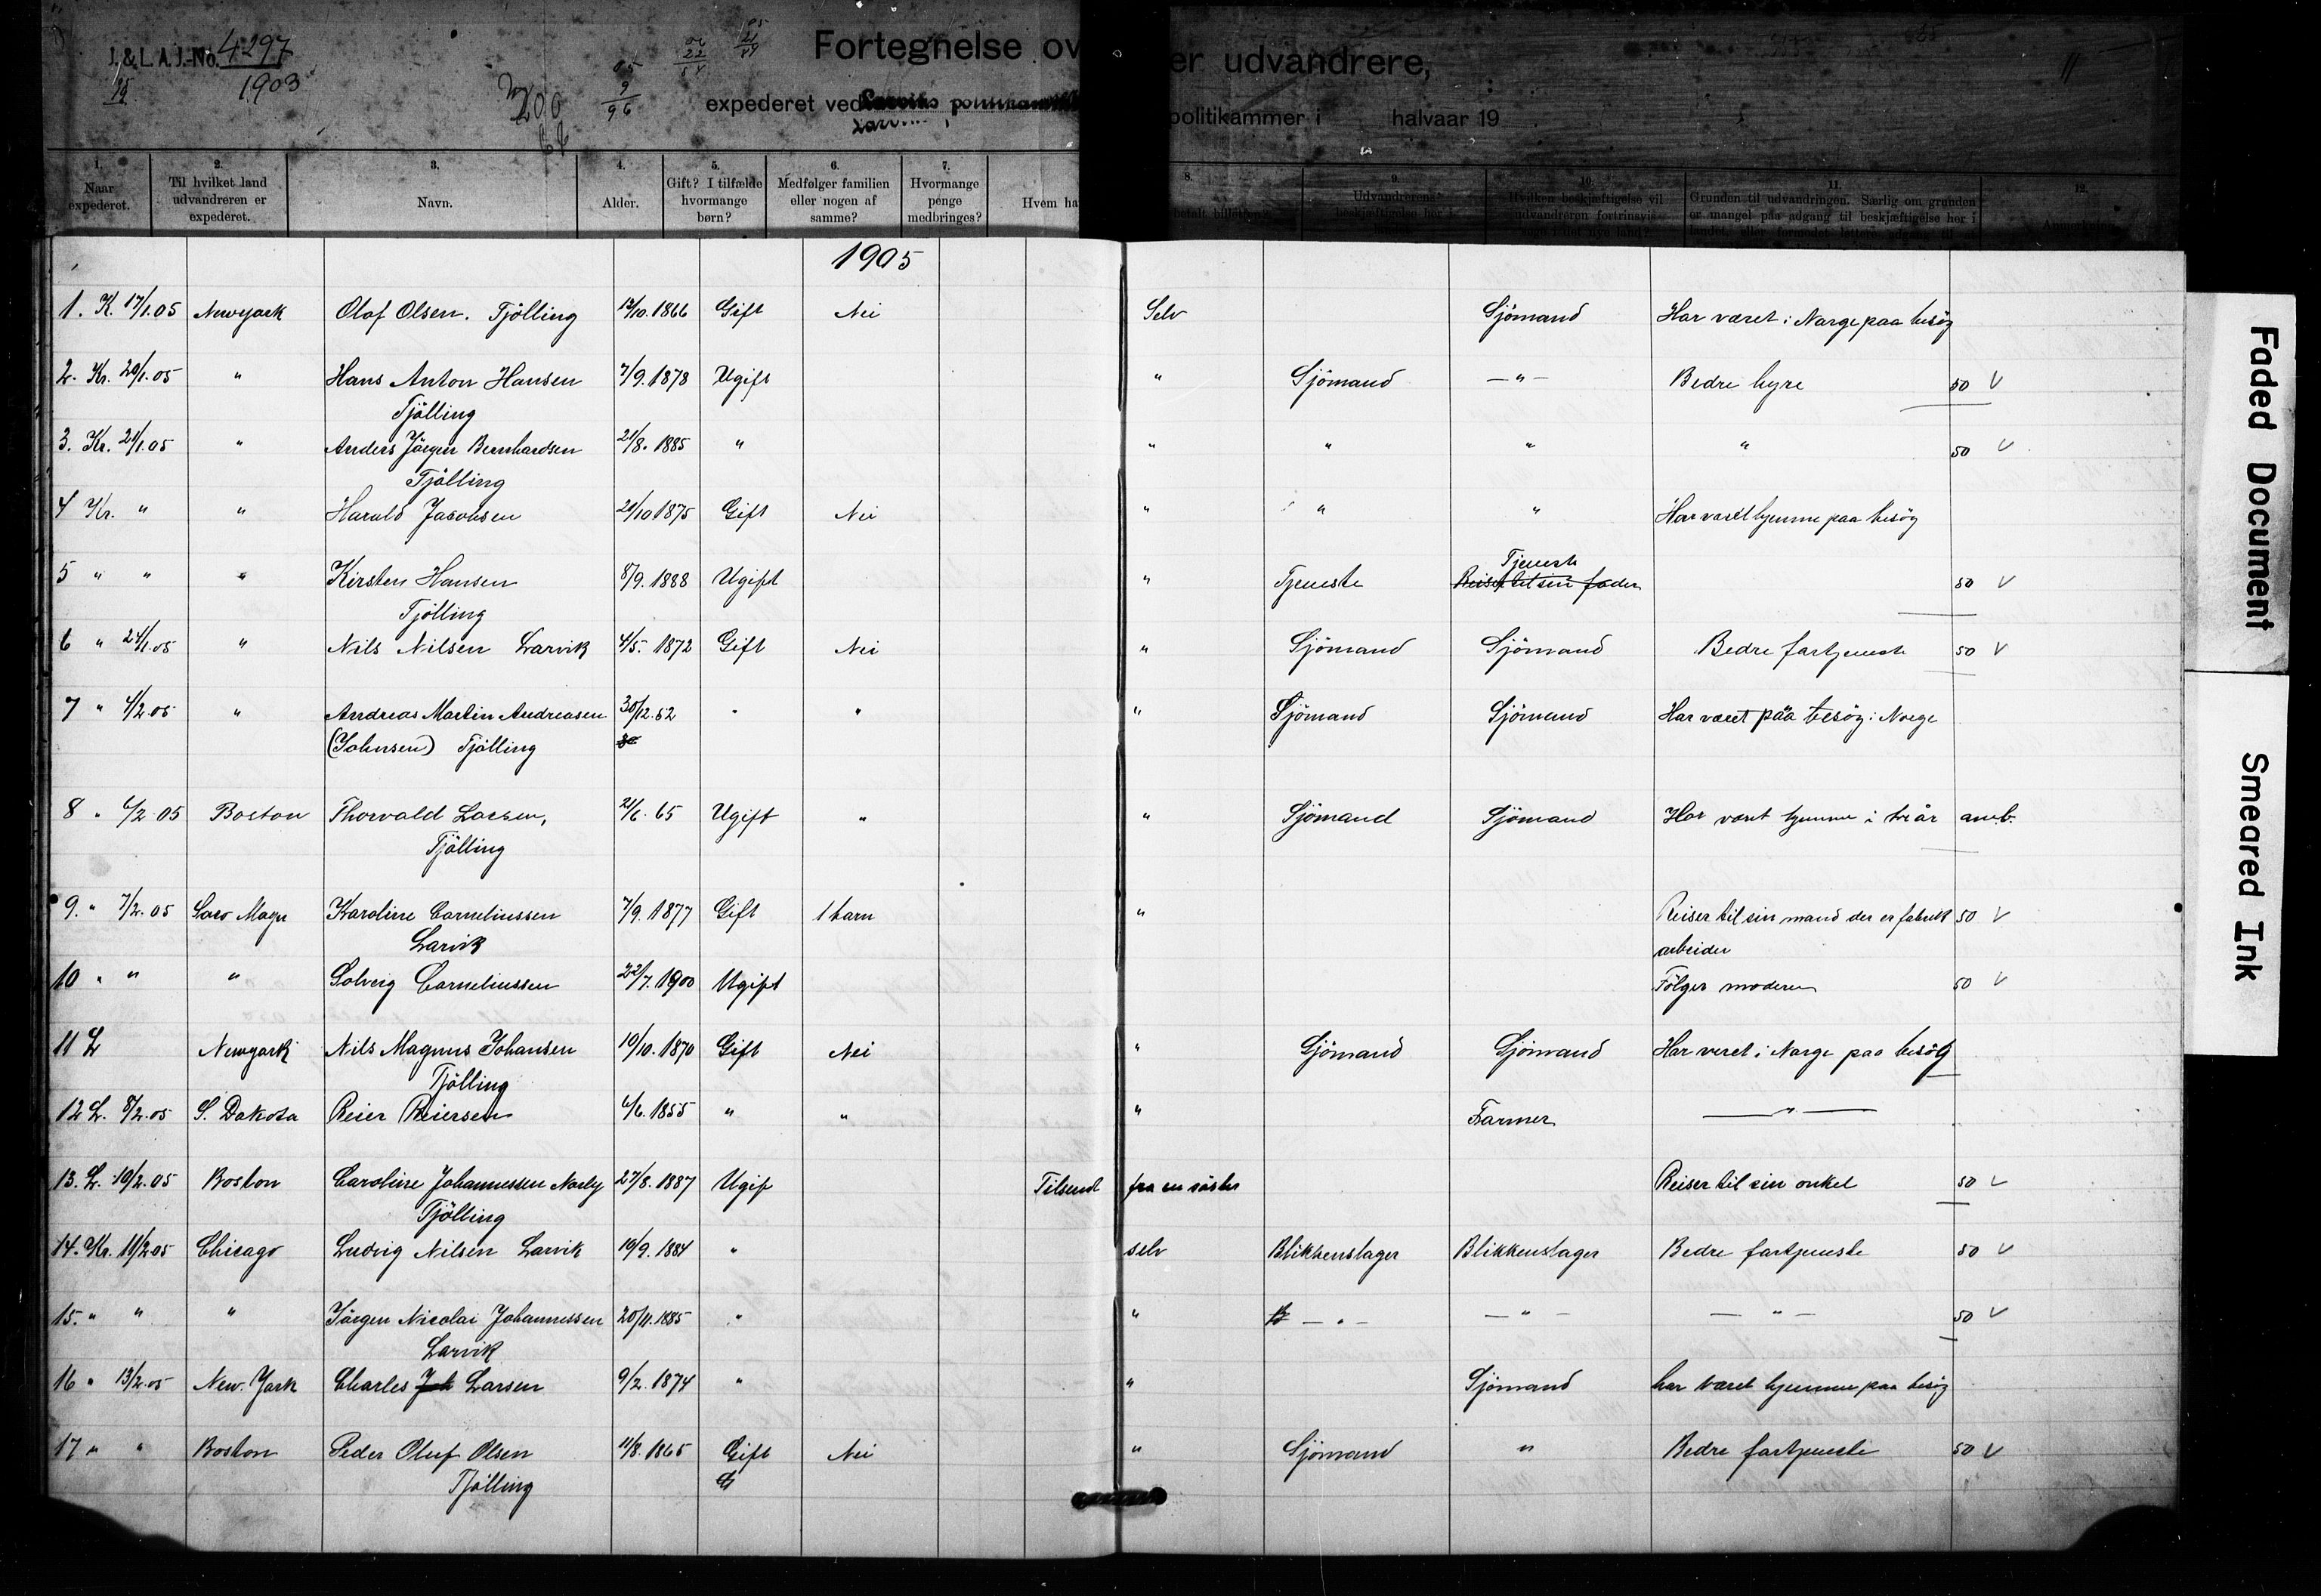 J. & L. A. J.-No. 4297
1903
200
05
9
96
Fortegnelse ov er udvandrere,
expederet ved Larviks politikammer
politikammer i halvaar 19
1. Naar expederet.
2. Til hvilket land udvandreren er expederet.
3. Navn.
4. Alder.
5. Gift? I tilfælde hvormange børn?
6. Medfølger familien eller nogen af samme?
7. Hvormange penge medbringes?
Hvem ha
8. betalt billetten?
9. Udvandrerens beskjæftigelse her i
10. Hvilken beskjæftigelse vil udvandreren fortrinsvis søge i det nye land?
11. Grunden til udvandringen. Særlig om grunden er mangel paa adgang til beskjæftigelse her i landet, eller formodet lettere adgang til
12.
1905
1. K. 17/1.05 Newyork Olof Olsen. Tjölling 12/10.1866 Gift Nei Selv Sjömand Har været i Norge paa besög
2. Kr. 20/1.05 " Hans Anton Hansen 7/9.1878 Ugift " Sjömand —"— Bedre hyre 50 V
Tjölling
3. Kr. 21/1.05 " Anders Jörgen Bernhardsen 21/8.1885 " " " " " 50 V
Tjölling
4 Kr. " " Harald Jacobsen 20/10 1875 Gift Nei " " " Har været hjemme paa besög
Tjeneste
5 " " " Kirsten Hansen 8/9.1888 Ugift " Tjeneste Reiser til sin fader 50 V
Tjölling
6 " 24/1.05 " Nils Nilsen Larvik 4/5. 1872 Gift Nei " Sjömand Sjömand Bedre fortjeneste 50 V
7 " 4/2.05 " Andreas Martin Andreasen 30/12.62 " " " Sjömand Sjömand Har været paa besög i Norge
(Johnsen) Tjölling 30
8 " 6/2 05 Boston Thorvald Larsen, 21/6. 65 Ugift " " Sjömand Sjömand Har været hjemme i tre år
Tjölling
9. " 7/2.05 Karoline Corneliussen 7/9.1877 Gift 1 barn " Reiser til sin mand der er fabrikk 50 V
Larvik arbeider
10 " " " Solveig Corneliussen 22/7.1900 Ugift Fölger moderen 50 V
11 L Newyork Nils Magnus Johansen 10/10.1870 Gift Nei " Sjömand Sjömand Har været i Norge paa besög
Tjölling
12 L. 8/2.05 S. Dakota Reier Reiersen 6/6.1855 " " " Farmer —"—
13. L. 10/2.05 Boston Caroline Johannessen 27/8.1887 Ugif Tilsendt fra en söster Reiser til sin onkel 50 V
Tjölling
14. Kr. 11/2 05 Chicago Ludvig Nilsen Larvik 10/9.1884 " selv Blikkenslager Blikkenslager Bedre fortjeneste 50 V
15. " " " Jörgen Nicolai Johannessen 20/11.1885 " " B —"— —"— —"— 50 V
Larvik
16 " 13/2.05 New. York Charles Joh Larsen 9/2.1874 " " Sjömand har været hjemme paa besög
17 " " Boston Peder Oluf Olsen 11/8.1865 Gift Nei " Sjömand " Bedre fortjeneste 50 V
Tjölling
Faded Document
Smeared Ink